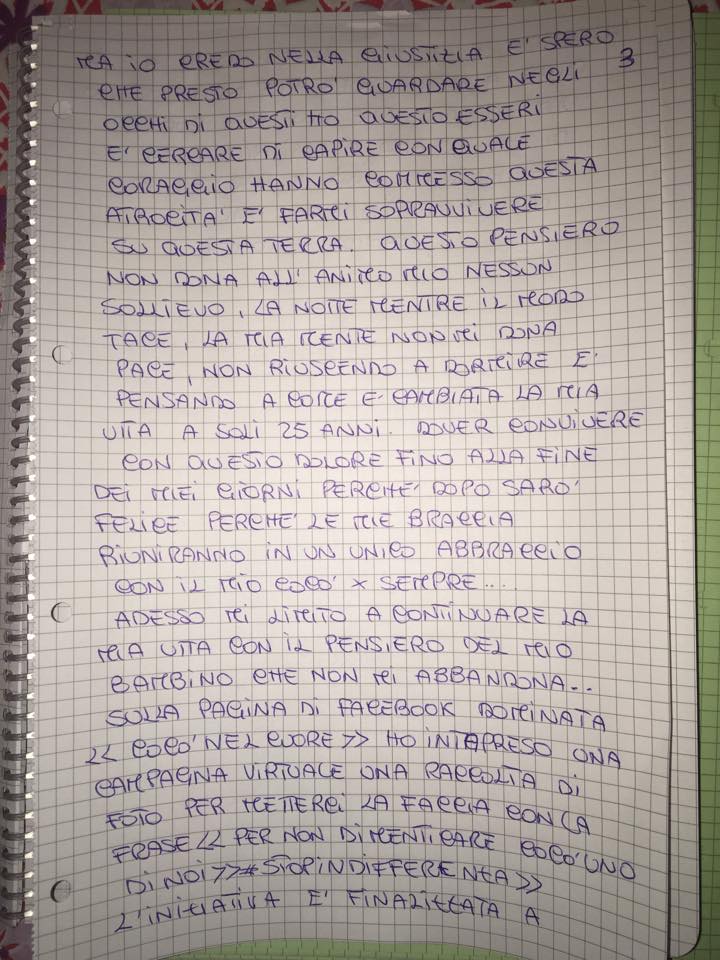 MA IO CREDO NELLA GIUSTIZIA E' SPERO 3
CHE PRESTO POTRO' GUARDARE NEGLI
OCCHI DI QUESTI HO QUESTO ESSERI
E' CERCARE DI CAPIRE CON QUALE
CORAGGIO HANNO COMMESSO QUESTA
ATROCITA' E' FARMI SOPRAVVIVERE
SU QUESTA TERRA. QUESTO PENSIERO
NON DONA ALL' ANIMO MIO NESSON
SOLLIEVO, LA NOTTE MENTRE IL MODO
TACE, LA MIA MENTE NON MI DONA
PACE, NON RIUSCENDO A DORMIRE E'
PENSANDO A COME E' CAMBIATA LA MIA
VITA A SOLI 25 ANNI. DOVER CONVIVERE
CON QUESTO DOLORE FINO ALLA FINE
DEI MIEI GIORNI PERCHE' DOPO SARO'
FELICE PERCHE' LE MIE BRACCIA
RIUNIRANNO IN UN UNICO ABBRACCIO
CON IL MIO COCO' X SEMPRE....
ADESSO MI LIMITO A CONTINUARE LA
MIA VITA CON IL PENSIERO DEL MIO
BAMBINO CHE NON MI ABBANDONA...
SULLA PAGINA DI FACEBOOK DOMINATA
<< COCO' NEL CUORE >> HO INTAPRESO UNA
CAMPAGNA VIRTUALE UNA RACCOLTA DI
FOTO PER METTERCI LA FACCIA CON LA
FRASE << PER NON DIMENTICARE COCO' UNO
DI NOI >> #STOPINDIFFERENZA >>
L'INIZIATIVA E' FINALIZZATA A